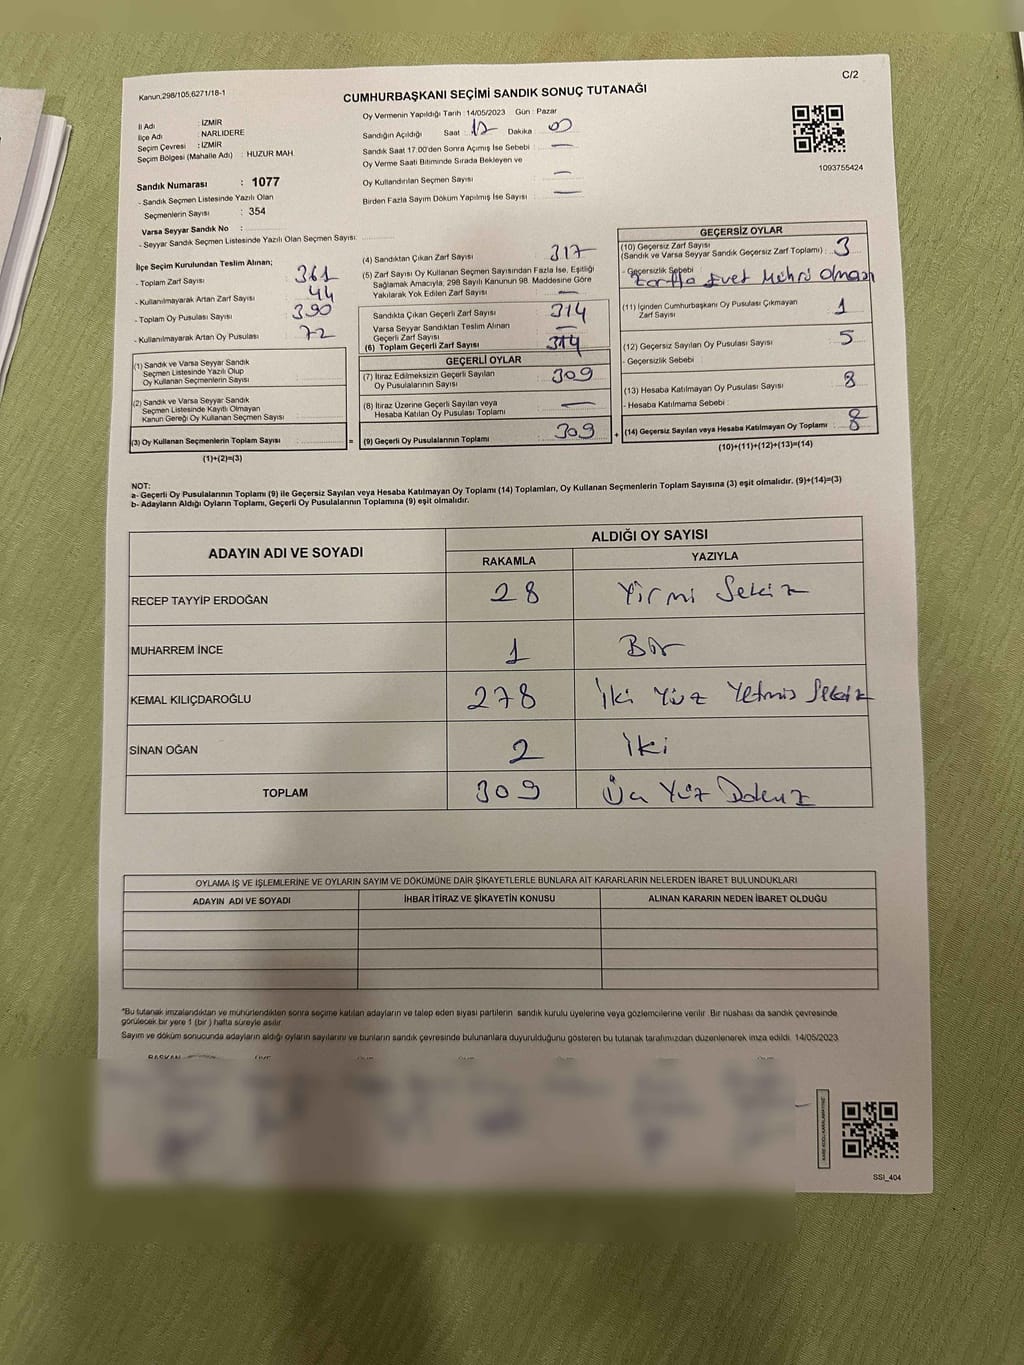 C/2
Kanun,298/105,6271/18-1
CUMHURBAŞKANI SEÇİMİ SANDIK SONUÇ TUTANAĞI
İl Adı : İZMİR
İlçe Adı : NARLIDERE
Seçim Çevresi : İZMİR
Seçim Bölgesi (Mahalle Adı) : HUZUR MAH.
Sandık Numarası : 1077
- Sandık Seçmen Listesinde Yazılı Olan
Seçmenlerin Sayısı : 354
Varsa Seyyar Sandık No :
- Seyyar Sandık Seçmen Listesinde Yazılı Olan Seçmen Sayısı:
Oy Vermenin Yapıldığı Tarih : 14/05/2023 Gün : Pazar
Sandığın Açıldığı Saat : 17 Dakika : 00
Sandık Saat 17:00'den Sonra Açımış İse Sebebi : —
Oy Verme Saati Bitiminde Sırada Bekleyen ve
Oy Kullandırılan Seçmen Sayısı : —
Birden Fazla Sayım Döküm Yapılmış İse Sayısı : —
1093755424
İlçe Seçim Kurulundan Teslim Alınan;
- Toplam Zarf Sayısı : 361
- Kullanılmayarak Artan Zarf Sayısı : 44
- Toplam Oy Pusulası Sayısı : 390
- Kullanılmayarak Artan Oy Pusulası : 72
(1) Sandık ve Varsa Seyyar Sandık
Seçmen Listesinde Yazılı Olup
Oy Kullanan Seçmenlerin Sayısı :
(2) Sandık ve Varsa Seyyar Sandık
Seçmen Listesinde Kayıtlı Olmayan
Kanun Gereği Oy Kullanan Seçmen Sayısı :
(3) Oy Kullanan Seçmenlerin Toplam Sayısı : =
(1)+(2)=(3)
(4) Sandıktan Çıkan Zarf Sayısı : 317
(5) Zarf Sayısı Oy Kullanan Seçmen Sayısından Fazla İse, Eşitliği
Sağlamak Amacıyla, 298 Sayılı Kanunun 98. Maddesine Göre
Yakılarak Yok Edilen Zarf Sayısı : —
Sandıkta Çıkan Geçerli Zarf Sayısı : 314
Varsa Seyyar Sandıktan Teslim Alınan
Geçerli Zarf Sayısı : —
(6) Toplam Geçerli Zarf Sayısı : 314
GEÇERLİ OYLAR
(7) İtiraz Edilmeksizin Geçerli Sayılan
Oy Pusulalarının Sayısı : 309
(8) İtiraz Üzerine Geçerli Sayılan veya
Hesaba Katılan Oy Pusulası Toplamı : —
(9) Geçerli Oy Pusulalarının Toplamı : 309 +
GEÇERSİZ OYLAR
(10) Geçersiz Zarf Sayısı
(Sandık ve Varsa Seyyar Sandık Geçersiz Zarf Toplamı) : 3
- Geçersizlik Sebebi
Evet Mührü Olması
(11) İçinden Cumhurbaşkanı Oy Pusulası Çıkmayan
Zarf Sayısı : 1
(12) Geçersiz Sayılan Oy Pusulası Sayısı : 5
- Geçersizlik Sebebi :
(13) Hesaba Katılmayan Oy Pusulası Sayısı : 8
- Hesaba Katılmama Sebebi :
(14) Geçersiz Sayılan veya Hesaba Katılmayan Oy Toplamı : 8
(10)+(11)+(12)+(13)=(14)
NOT:
a- Geçerli Oy Pusulalarının Toplamı (9) ile Geçersiz Sayılan veya Hesaba Katılmayan Oy Toplamı (14) Toplamları, Oy Kullanan Seçmenlerin Toplam Sayısına (3) eşit olmalıdır. (9)+(14)=(3)
b- Adayların Aldığı Oyların Toplamı, Geçerli Oy Pusulalarının Toplamına (9) eşit olmalıdır.
ADAYIN ADI VE SOYADI
ALDIĞI OY SAYISI
RAKAMLA YAZIYLA
RECEP TAYYİP ERDOĞAN 28 Yirmi Sekiz
MUHARREM İNCE 1 Bir
KEMAL KILIÇDAROĞLU 278 İki Yüz Yetmiş Sekiz
SİNAN OĞAN 2 İki
TOPLAM 309 Üç Yüz Dokuz
OYLAMA İŞ VE İŞLEMLERİNE VE OYLARIN SAYIM VE DÖKÜMÜNE DAİR ŞİKAYETLERLE BUNLARA AİT KARARLARIN NELERDEN İBARET BULUNDUKLARI
ADAYIN ADI VE SOYADI İHBAR İTİRAZ VE ŞİKAYETİN KONUSU ALINAN KARARIN NEDEN İBARET OLDUĞU
"Bu tutanak imzalandıktan ve mühürlendikten sonra seçime katılan adayların ve talep eden siyasi partilerin sandık kurulu üyelerine veya gözlemcilerine verilir. Bir nüshası da sandık çevresinde
görülecek bir yere 1 (bir) hafta süreyle asılır.
Sayım ve döküm sonucunda adayların aldığı oyların sayılarını ve bunların sandık çevresinde bulunanlara duyurulduğunu gösteren bu tutanak tarafımızdan düzenlenerek imza edildi. 14/05/2023
BAŞKAN
SSI_404